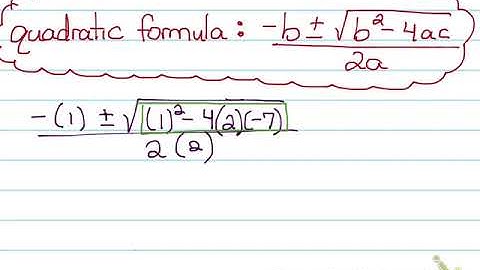 quadratic formula: -b ± √b² - 4ac
2a
-(1) ± √(1)² - 4(2)(-7)
2(2)